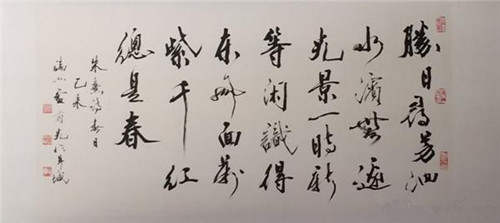 勝日尋芳泗
水濱無邊
光景一時新
等閑識得
東風面萬
紫千紅
總是春
朱熹詩春日
乙未
於羊城